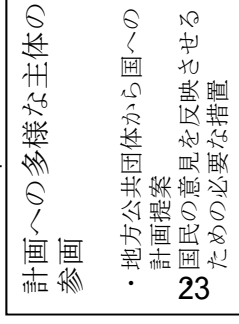 計画への多様な主体の
参画
・地方公共団体から国への
計画提案
国民の意見を反映させる
ための必要な措置
23